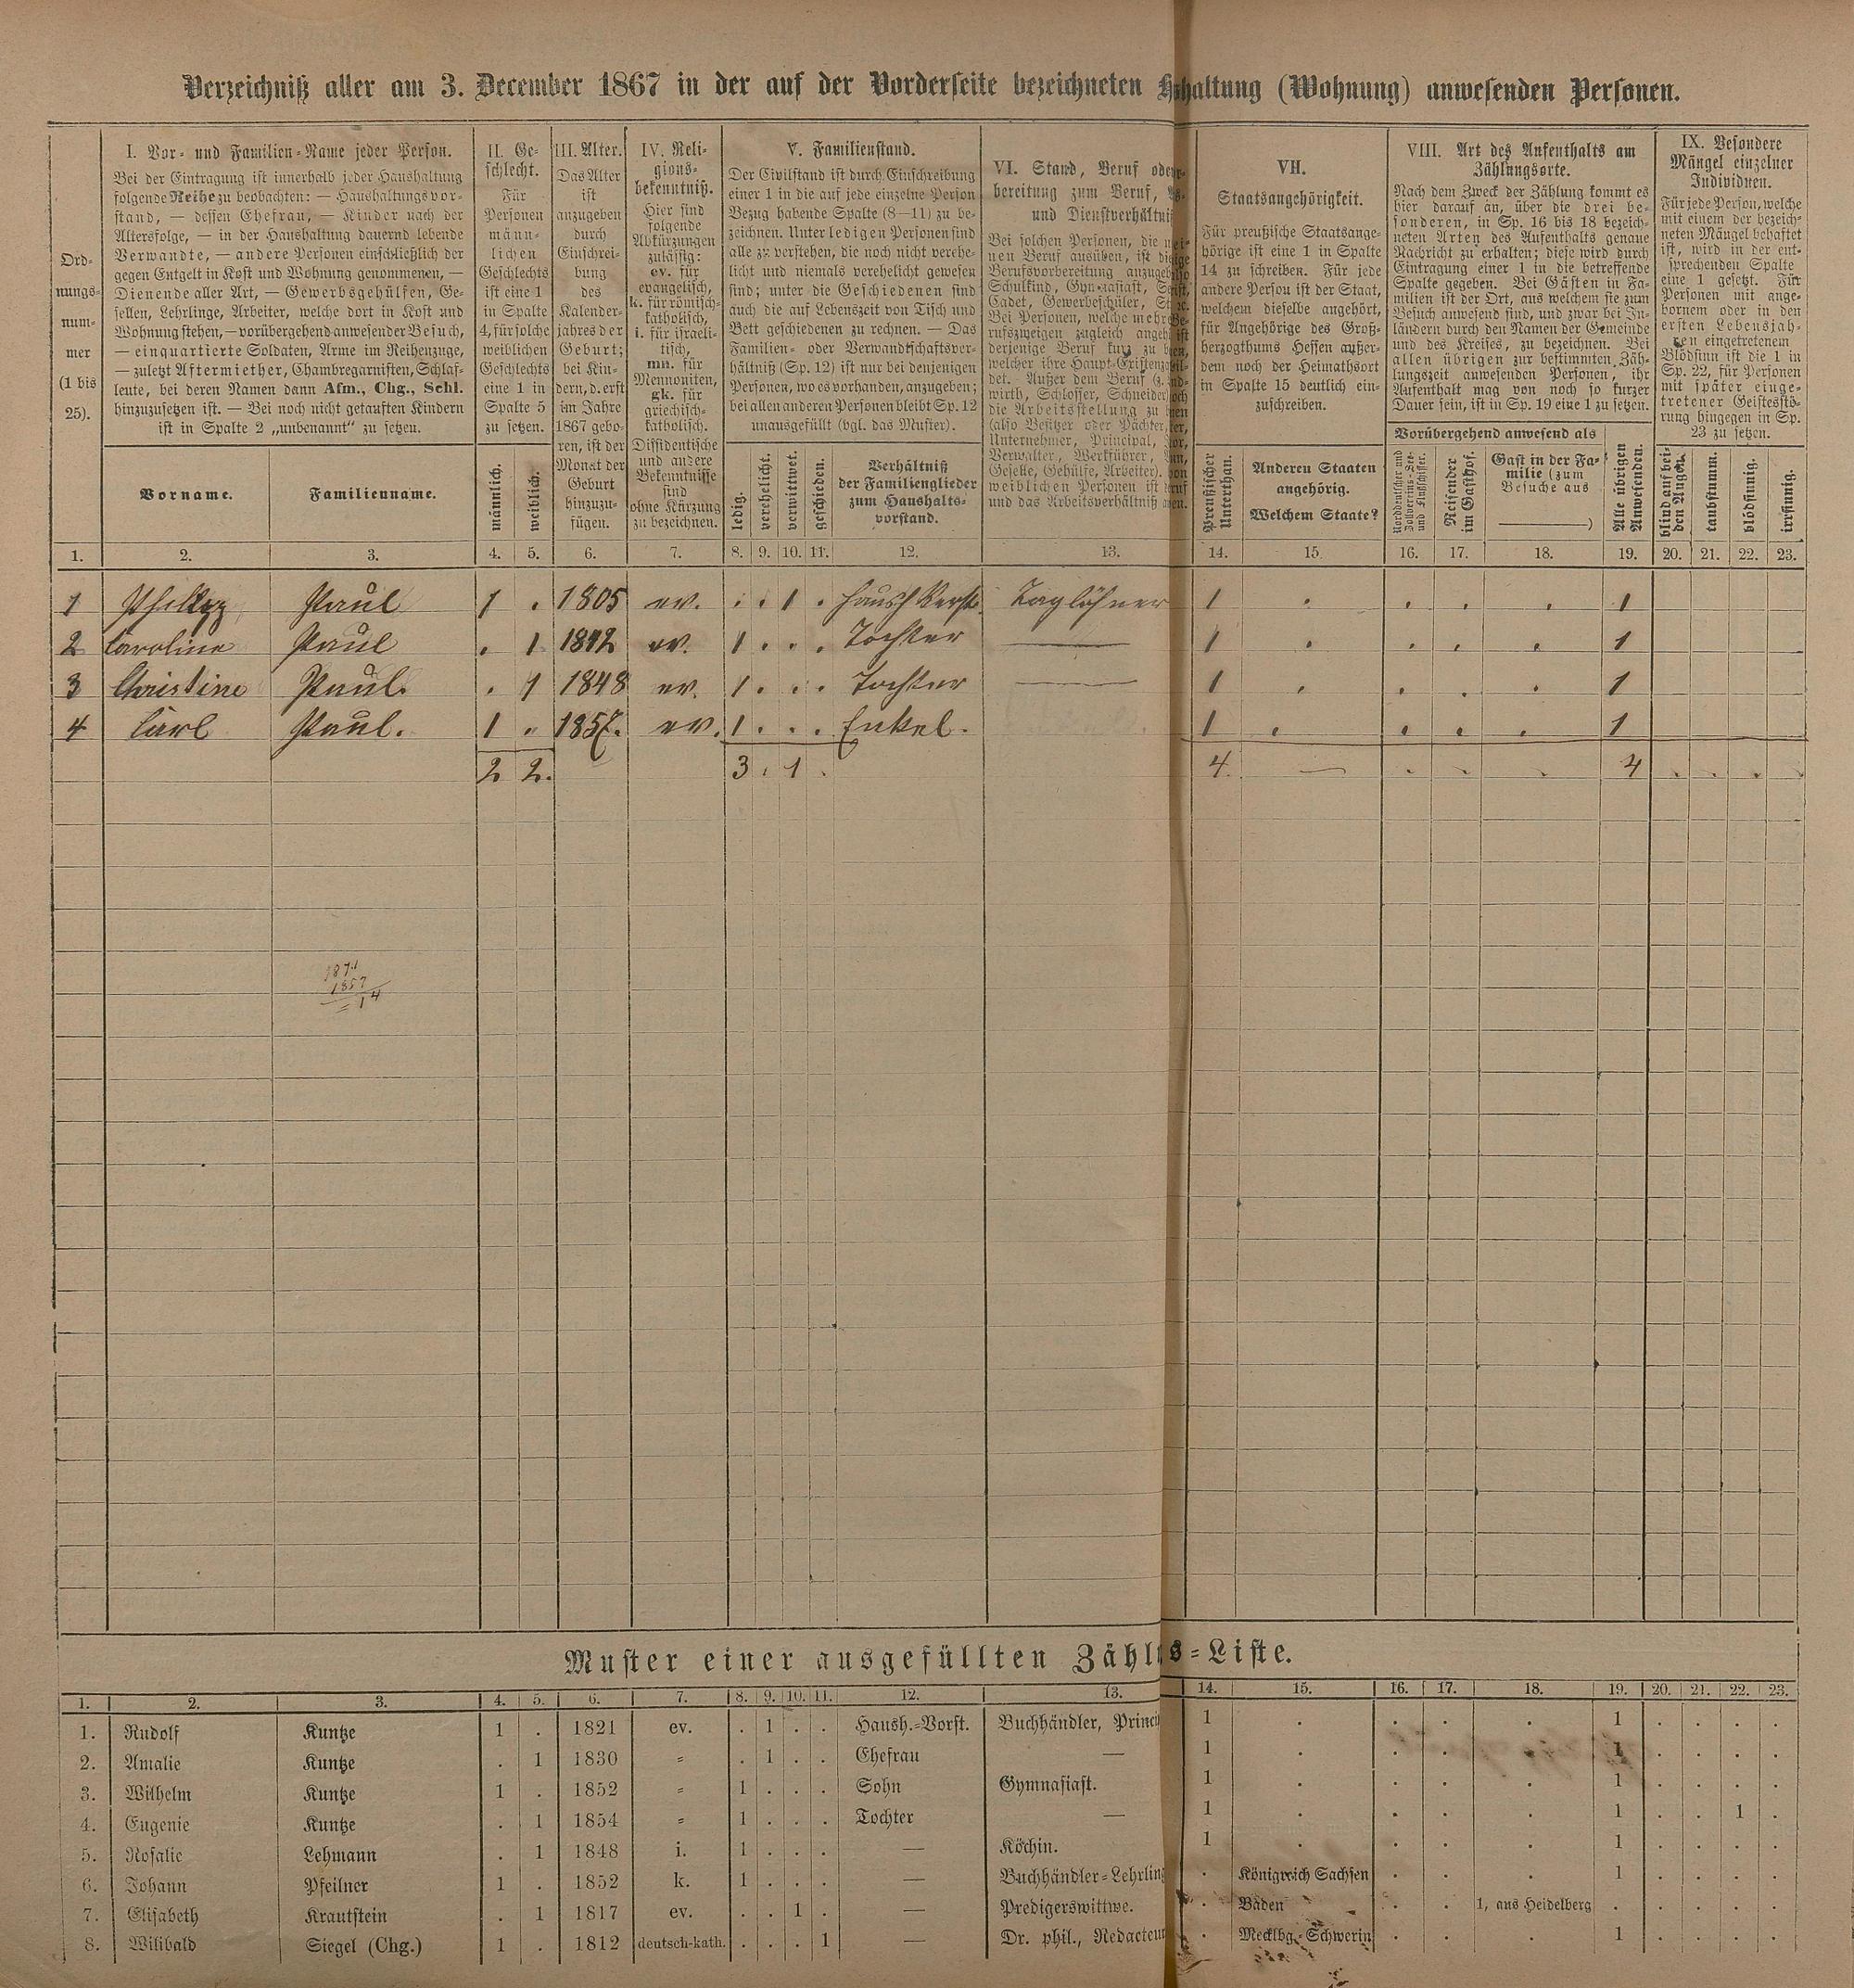 Verzeichniß aller am 3. December 1867 in der auf der Vorderseite bezeichneten haltung (Wohnung) anwesenden Personen.
Ord-
nungs-
num-
mer
(1 bis
25).
I. Vor- und Familien-Name jeder Person.
Bei der Eintragung ist innerhalb jeder Haushaltung
folgende Reihe zu beobachten: — Haushaltungsvor-
stand, — dessen Ehefrau, — Kinder nach der
Altersfolge, — in der Haushaltung dauernd lebende
Verwandte, — andere Personen einschließlich der
gegen Entgelt in Kost und Wohnung genommenen, —
Dienende aller Art, — Gewerbsgehülfen, Ge-
sellen, Lehrlinge, Arbeiter, welche dort in Kost und
Wohnung stehen, — vorübergehend anwesender Besuch,
— einquartierte Soldaten, Arme im Reihenzuge,
— zuletzt Aftermiether, Chambregarnisten, Schlaf-
leute, bei deren Namen dann Afm., Chg., Schl.
hinzuzusetzen ist. — Bei noch nicht getauften Kindern
ist in Spalte 2 „unbenannt“ zu setzen.
Vorname.
Familienname.
II. Ge-
schlecht.
Für
Personen
männ-
lichen
Geschlechts
ist eine 1
in Spalte
4, für solche
weiblichen
Geschlechts
eine 1 in
Spalte 5
zu setzen.
männlich.
weiblich.
III. Alter.
Das Alter
ist
anzugeben
durch
Einschrei-
bung
des
Kalender-
jahres der
Geburt;
bei Kin-
dern, d. erst
im Jahre
1867 gebo-
ren, ist der
Monat der
Geburt
hinzuzu-
fügen.
IV. Reli-
gions-
bekenntniß.
Hier sind
folgende
Abkürzungen
zulässig:
ev. für
evangelisch,
k. für römisch-
katholisch,
i. für israeli-
tisch,
mn. für
Mennoniten,
gk. für
griechisch-
katholisch.
Dissidentische
und andere
Bekenntnisse
sind
ohne Kürzung
zu bezeichnen.
V. Familienstand.
Der Civilstand ist durch Einschreibung
einer 1 in die auf jede einzelne Person
Bezug habende Spalte (8—11) zu be-
zeichnen. Unter ledigen Personen sind
alle zu verstehen, die noch nicht verehe-
licht und niemals verehelicht gewesen
sind; unter die Geschiedenen sind
auch die auf Lebenszeit von Tisch und
Bett geschiedenen zu rechnen. — Das
Familien- oder Verwandtschaftsver-
hältniß (Sp. 12) ist nur bei denjenigen
Personen, wo es vorhanden, anzugeben;
bei allen anderen Personen bleibt Sp. 12
unausgefüllt (vgl. das Muster).
ledig.
verehelicht.
verwittwet.
geschieden.
Verhältniß
der Familienglieder
zum Haushalts-
vorstand.
VI. Stand, Beruf oder
bereitung zum Beruf,
und Dienstverhältni
Bei solchen Personen, die
nen Beruf ausüben, ist die
Berufsvorbereitung anzugeb
Schulkind, Gymnasiast,
Cadet, Gewerbeschüler,
Bei Personen, welche mehr
rufszweigen zugleich angeh
derjenige Beruf kurz zu
welcher ihre Haupt-Existenz
det. Außer dem Beruf (z.
wirth, Schlosser, Schneider
die Arbeitsstellung zu
(also Besitzer oder Pächter,
Unternehmer, Principal,
Verwalter, Werkführer,
Geselle, Gehülfe, Arbeiter).
weiblichen Personen ist
und das Arbeitsverhältniß
VII.
Staatsangehörigkeit.
Für preußische Staatsange-
hörige ist eine 1 in Spalte
14 zu schreiben. Für jede
andere Person ist der Staat,
welchem dieselbe angehört,
für Angehörige des Groß-
herzogthums Hessen außer-
dem noch der Heimathsort
in Spalte 15 deutlich ein-
zuschreiben.
Preußischer
Unterthan.
Anderen Staaten
angehörig.
Welchem Staate?
VIII. Art des Aufenthalts am
Zählungsorte.
Nach dem Zweck der Zählung kommt es
hier darauf an, über die drei be-
sonderen, in Sp. 16 bis 18 bezeich-
neten Arten des Aufenthalts genaue
Nachricht zu erhalten; diese wird durch
Eintragung einer 1 in die betreffende
Spalte gegeben. Bei Gästen in Fa-
milien ist der Ort, aus welchem sie zum
Besuch anwesend sind, und zwar bei In-
ländern durch den Namen der Gemeinde
und des Kreises, zu bezeichnen. Bei
allen übrigen zur bestimmten Zäh-
lungszeit anwesenden Personen, ihr
Aufenthalt mag von noch so kurzer
Dauer sein, ist in Sp. 19 eine 1 zu setzen.
Vorübergehend anwesend als
Norddeutscher und
Zollvereins-See-
und Flußschiffer.
Reisender
im Gasthof.
Gast in der Fa-
milie (zum
Besuche aus
)
Alle übrigen
Anwesenden.
IX. Besondere
Mängel einzelner
Individuen.
Für jede Person, welche
mit einem der bezeich-
neten Mängel behaftet
ist, wird in der ent-
sprechenden Spalte
eine 1 gesetzt. Für
Personen mit ange-
bornem oder in den
ersten Lebensjah-
ren eingetretenem
Blödsinn ist die 1 in
Sp. 22, für Personen
mit später einge-
tretener Geistesstö-
rung hingegen in Sp.
23 zu setzen.
blind auf bei-
den Augen.
taubstumm.
blödsinnig.
irrsinnig.
1. 2. 3. 4. 5. 6. 7. 8. 9. 10. 11. 12. 13. 14. 15 16. 17. 18. 19. 20. 21. 22. 23.
1 Philipp Paul 1 . 1805 ev. . . 1 . Haush Vorst. Taglöhner 1 . . . . 1
2 Caroline Paul . 1 1842 ev. 1 . . . Tochter — 1 . . . . 1
3 Christine Paul. . 1 1848 ev. 1 . . . Tochter — 1 . . . . 1
4 Carl Paul. 1 . 1857. ev. 1 . . . Enkel. 1 . . . . 1
2 2. 3 . 1 . 4. — . . . 4 . . . .
1871
1857
= 14
Muster einer ausgefüllten Zähl s-Liste.
1. 2. 3. 4. 5. 6. 7. 8. 9. 10. 11. 12. 13. 14. 15. 16. 17. 18. 19. 20. 21. 22. 23.
1. Rudolf Kuntze 1 . 1821 ev. . 1 . . Haush.-Vorst. Buchhändler, Princi 1 . . . . 1 . . . .
2. Amalie Kuntze . 1 1830 = . 1 . . Ehefrau — 1 . . . . 1 . . . .
3. Wilhelm Kuntze 1 . 1852 = 1 . . . Sohn Gymnasiast. 1 . . . . 1 . . . .
4. Eugenie Kuntze . 1 1854 = 1 . . . Tochter — 1 . . . . 1 . . 1 .
5. Rosalie Lehmann . 1 1848 i. 1 . . . — Köchin. 1 . . . . 1 . . . .
6. Johann Pfeilner 1 . 1852 k. 1 . . . — Buchhändler-Lehrling . Königreich Sachsen . . . 1 . . . .
7. Elisabeth Krautstein . 1 1817 ev. . . 1 . — Predigerswittwe. . Baden . . 1, aus Heidelberg . . . . .
8. Wilibald Siegel (Chg.) 1 . 1812 deutsch-kath. . . . 1 — Dr. phil., Redacteur . Mecklbg.-Schwerin . . . 1 . . . .